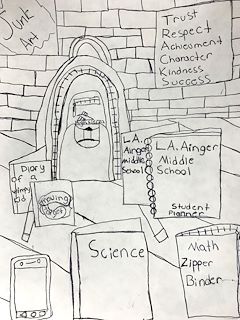 Junk
Art
Trust
Respect
Achievement
Character
Kindness
Success
L.A.
Ainger
Middle
School
L.A. Ainger
Middle
School
Student
Planner
Diary
of a
wimpy
kid
Science
Math
Zipper
Binder